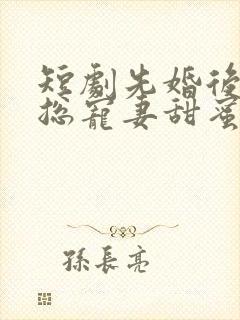 短劇先婚後
总寵妻甜蜜
孫長亮